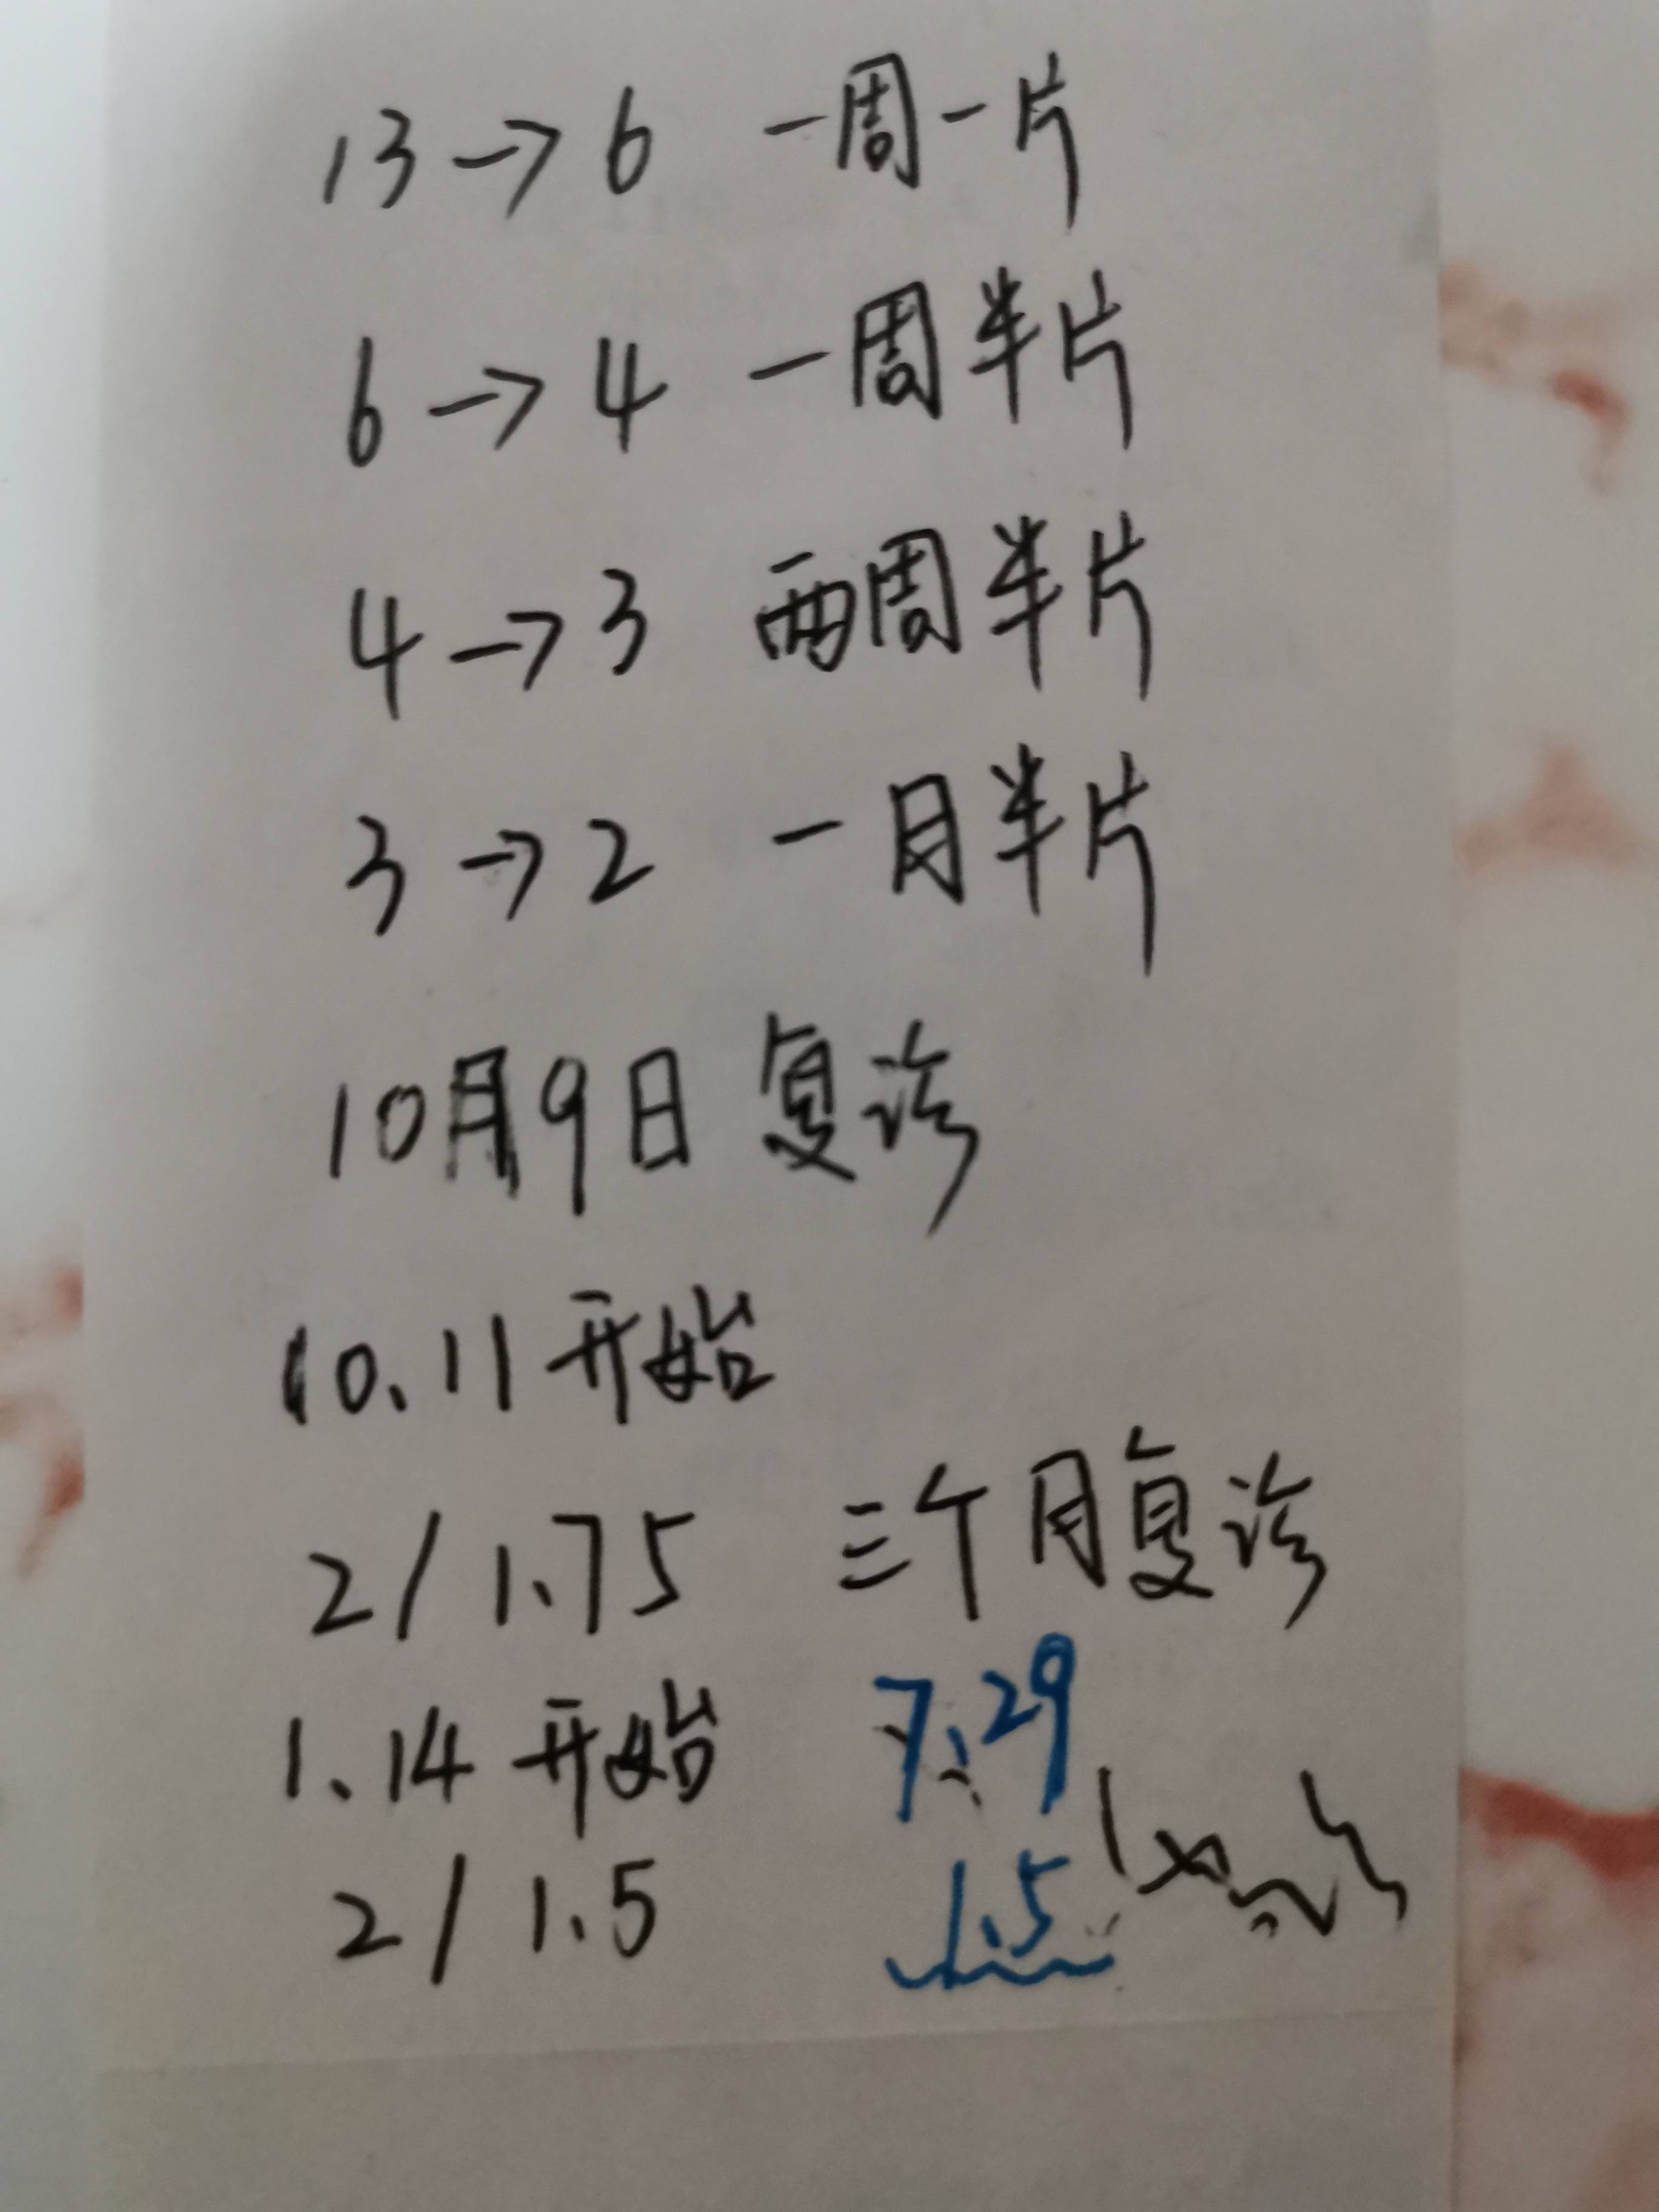 13→6 一周一片
6→4 一周半片
4→3 两周半片
3→2 一月半片
10月9日 复诊
10.11 开始
2/1.75 三个月复诊
1.14 开始 7.29
2/1.5 1.5